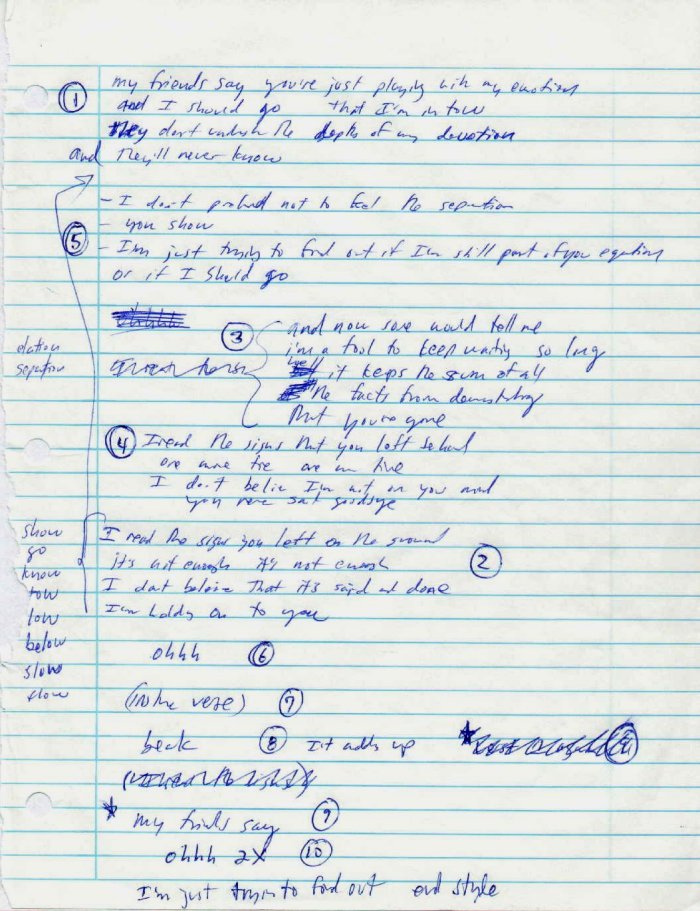 ① my friends say you're just playing with my emotions
and I should go that I'm in tow
they don't understand the depths of my devotion
and they'll never know
- I don't pretend not to feel the separation
- you show
⑤ - I'm just trying to find out if I'm still part of your equation
or if I should go
③ and now some would tell me
i'm a fool to keep waiting so long
well it keeps the sum of all
the facts from demonstrating
that you're gone
elation
separation
④ I read the signs that you left behind
one more time one more time
I don't believe I'm not on your mind
you never said goodbye
I read the signs you left on the ground
it's not enough it's not enough ②
I don't believe that it's said and done
I'm holding on to you
show
go
know
tow
low
below
slow
flow
ohhh ⑥
(in the verse) ⑦
break ⑧ It adds up
* my friends say ⑨
ohhh 2X ⑩
I'm just trying to find out end style